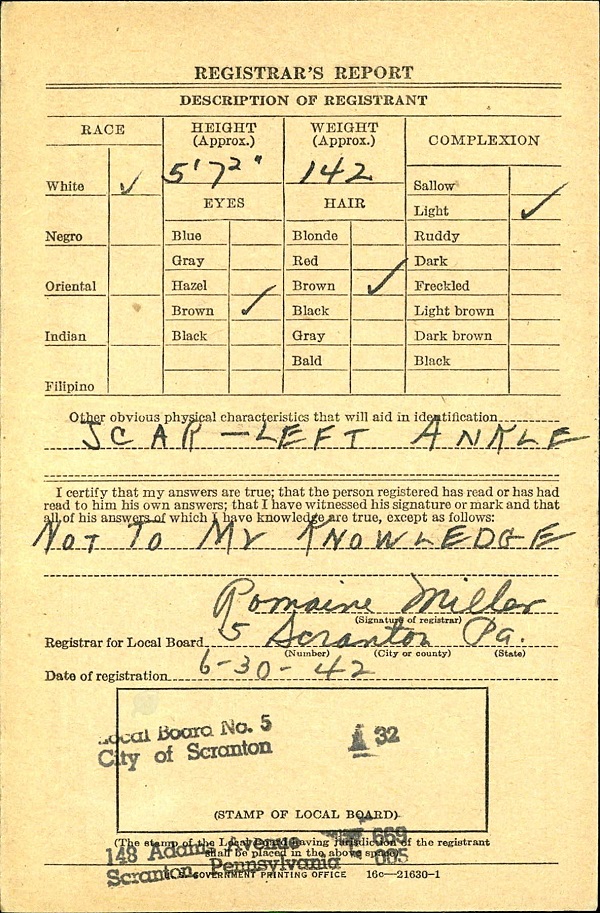 REGISTRAR'S REPORT
DESCRIPTION OF REGISTRANT
RACE
HEIGHT (Approx.)
WEIGHT (Approx.)
COMPLEXION
5'7 2"
142
White ✓
Negro
Oriental
Indian
Filipino
EYES
Blue
Gray
Hazel
Brown ✓
Black
HAIR
Blonde
Red
Brown ✓
Black
Gray
Bald
Sallow
Light ✓
Ruddy
Dark
Freckled
Light brown
Dark brown
Black
Other obvious physical characteristics that will aid in identification
SCAR — LEFT ANKLE
I certify that my answers are true; that the person registered has read or has had
read to him his own answers; that I have witnessed his signature or mark and that
all of his answers of which I have knowledge are true, except as follows:
NOT TO MY KNOWLEDGE
Romaine Miller
(Signature of registrar)
Registrar for Local Board 5 Scranton Pa.
(Number) (City or county) (State)
Date of registration 6-30-42
Local Board No. 5
City of Scranton
32
(STAMP OF LOCAL BOARD)
(The stamp of the Local Board having jurisdiction of the registrant
shall be placed in the above space)
148 Adams Avenue 669
Scranton, Pennsylvania 005
U.S. GOVERNMENT PRINTING OFFICE 16c—21630-1